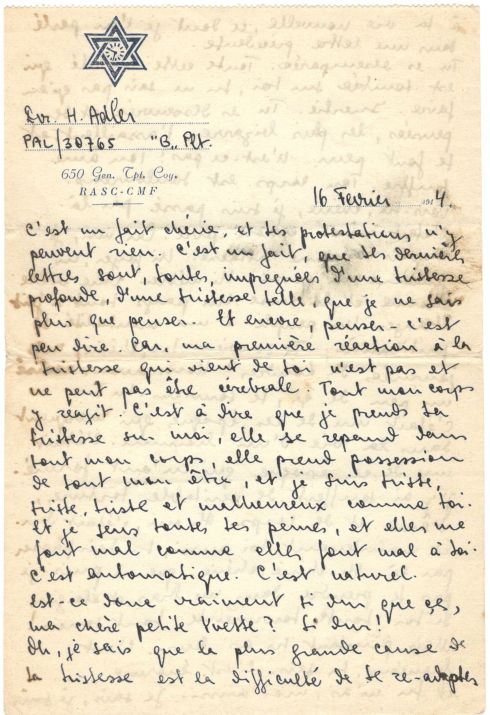 Dvr. H. Adler
PAL/30765 "B" Plt.
650 Gen. Tpt. Coy.
RASC-CMF
16 Fevrier 194 4.
C'est un fait chérie, et tes protestations n'y
peuvent rien. C'est un fait, que tes dernières
lettres sont, toutes, impregnées d'une tristesse
profonde, d'une tristesse telle, que je ne sais
plus que penser. Et encore, penser - c'est
peu dire. Car, ma première réaction à la
tristesse qui vient de toi n'est pas et
ne peut pas être cérébrale. Tout mon corps
y reagit. C'est à dire que je prends ta
tristesse sur moi, elle se repand dans
tout mon corps, elle prend possession
de tout mon être, et je suis triste,
triste, triste et malheureux comme toi.
Et je sens toutes tes peines, et elles me
font mal comme elles font mal à toi.
C'est automatique. C'est naturel.
Est-ce donc vraiment si dur que ça,
ma chère petite Yvette? Si dur?
Oh, je sais que la plus grande cause de
ta tristesse est la difficulté de te re-adapter